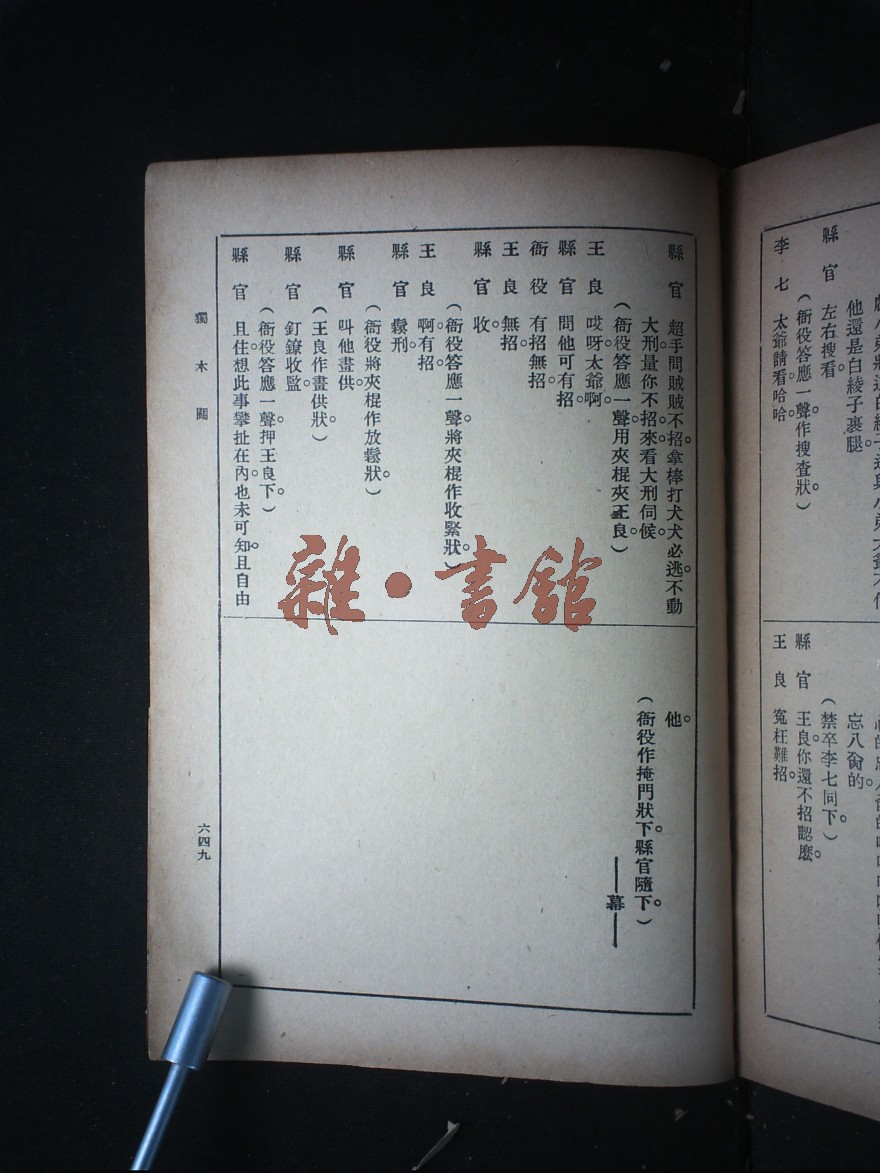 縣官　左右搜看。
（衙役答應一聲作搜查狀。）
李七　太爺請看哈哈。
他還是白綾子裹腿。
忘八肏的。
（禁卒李七同下。）
縣官　王良你還不招認麼。
王良　冤枉難招。
縣官　超手問賊賊不招。拿棒打犬犬必逃。不動
大刑量你不招。來看大刑伺候。
（衙役答應一聲用夾棍夾王良。）
王良　哎呀太爺啊。
縣官　問他可有招。
衙役　有招無招。
王良　無招。
縣官　收。
（衙役答應一聲將夾棍作收緊狀。）
王良　啊有招。
縣官　鬆刑。
（衙役將夾棍作放鬆狀。）
縣官　叫他畫供。
（王良作畫供狀。）
縣官　釘鐐收監。
（衙役答應一聲押王良下。）
縣官　且住。想此事攀扯在內也未可知。且自由
他。
（衙役作掩門狀下。縣官隨下。）
——幕——
獨木關
六四九
雜·書館